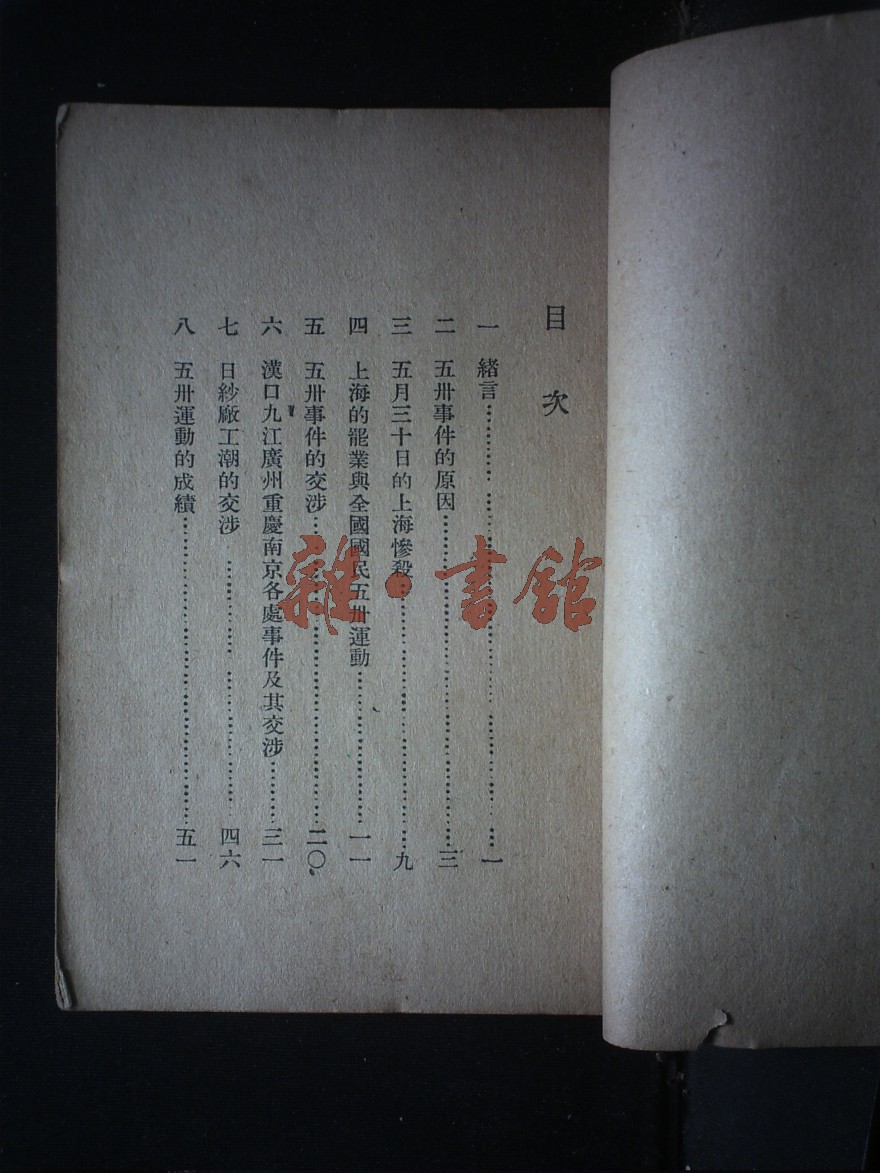 目次
一 緒言……一
二 五卅事件的原因……三
三 五月三十日的上海慘殺……九
四 上海的罷業與全國國民五卅運動……一一
五 五卅事件的交涉……二〇
六 漢口九江廣州重慶南京各處事件及其交涉……三一
七 日紗廠工潮的交涉……四六
八 五卅運動的成績……五一
雜·書館